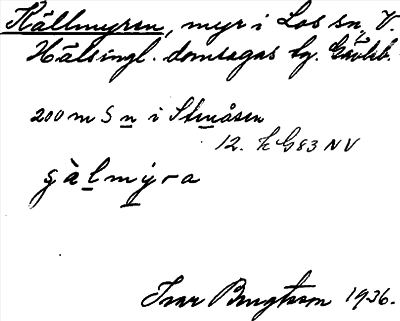 Källmyren, myr i Los sn, V.
Hälsingl. domsagas tg. Gävleb.
200 m S n i Stmåsen
12. h G83 NV
şàl mýra
Ivar Bengtsson 1936.